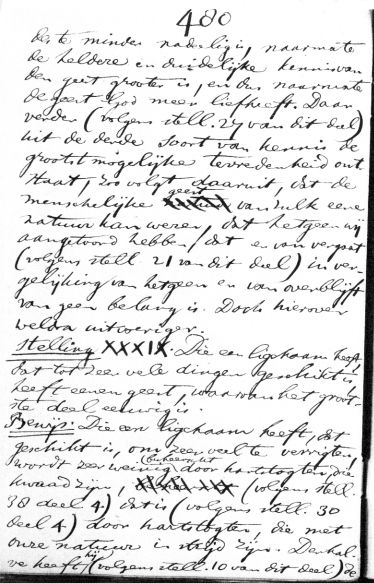 480
des te minder nadeelig is, naarmate
de heldere en duidelijke kennis van
den geest grooter is, en dus naarmate
de geest God meer liefheeft. Daar
verder (volgens stell. 27 van dit deel)
uit de derde soort van kennis de
grootst mogelijke tevredenheid ont
staat, zoo volgt daaruit, dat de
menschelijke geest van zulk eene
natuur kan wezen, dat hetgeen wij
aangetoond hebben, dat er van vergaat
(volgens stell. 21 van dit deel) in ver-
gelijking van hetgeen er van overblijft
van geen belang is. Doch hierover
weldra uitvoeriger.
Stelling XXXIX. Die een ligchaam heeft,
dat tot zeer vele dingen geschikt is,
heeft eenen geest, waarvan het groot-
ste deel eeuwig is.
Bewijs: Die een ligchaam heeft, dat
geschikt is, om zeer veel te verrigten,
wordt zeer weinig door hartstogten die
kwaad zijn, (volgens stell.
38 deel 4) dat is (volgens stell. 30
deel 4) door hartstogten, die met
onze natuur in strijd zijn. Derhal-
ve heeft hij (volgens stell. 10 van dit deel) de